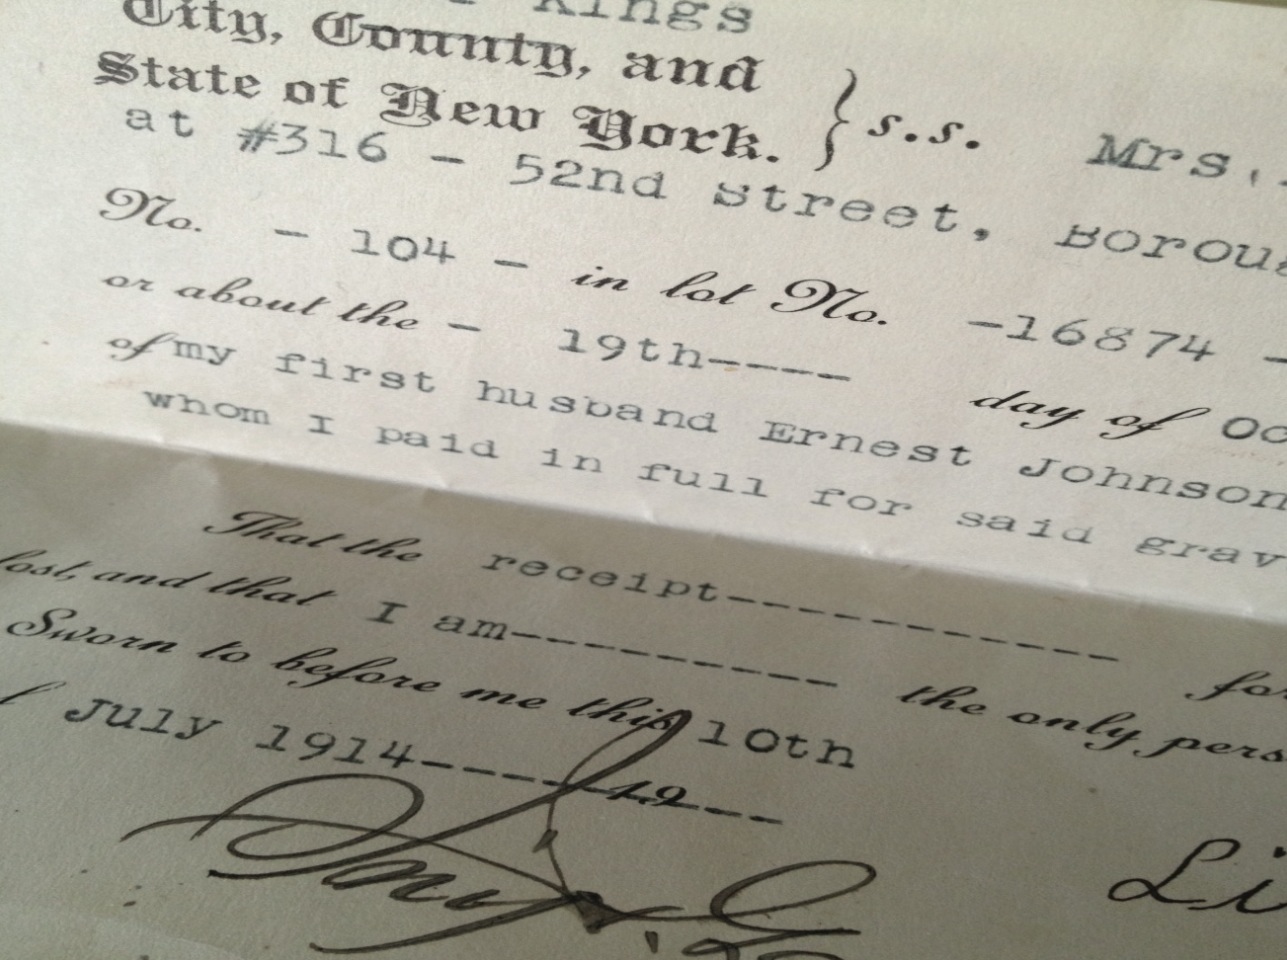 Kings
City, County, and
State of New York. } s.s. Mrs.
at #316 - 52nd street, Borou
No. - 104 - in lot No. -16874 -
or about the - 19th---- day of Oc
of my first husband Ernest Johnson
whom I paid in full for said grav
That the receipt------------ for
lost, and that I am---------- the only pers
Sworn to before me this 10th
July 1914------19---
Li